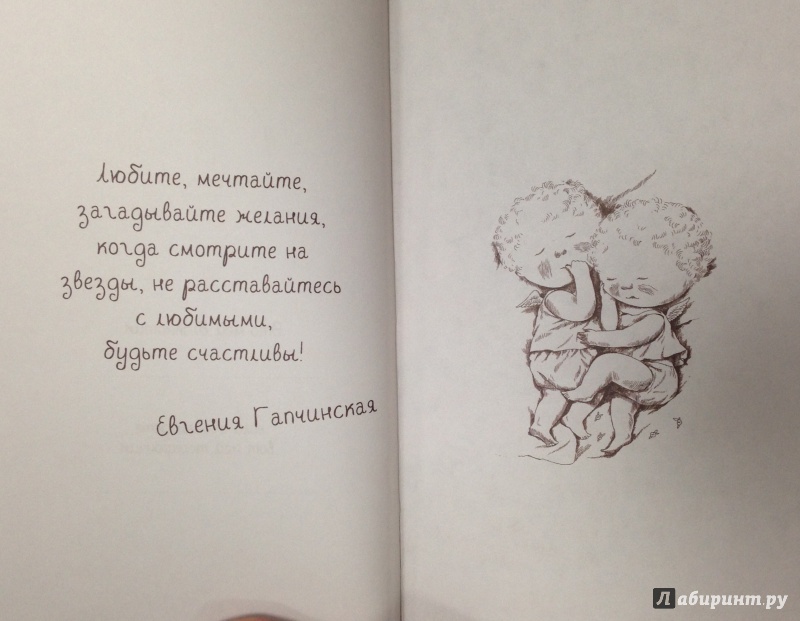 Любите, мечтайте,
загадывайте желания,
когда смотрите на
звезды, не расставайтесь
с любимыми,
будьте счастливы!
Евгения Гапчинская
Лабиринт.ру